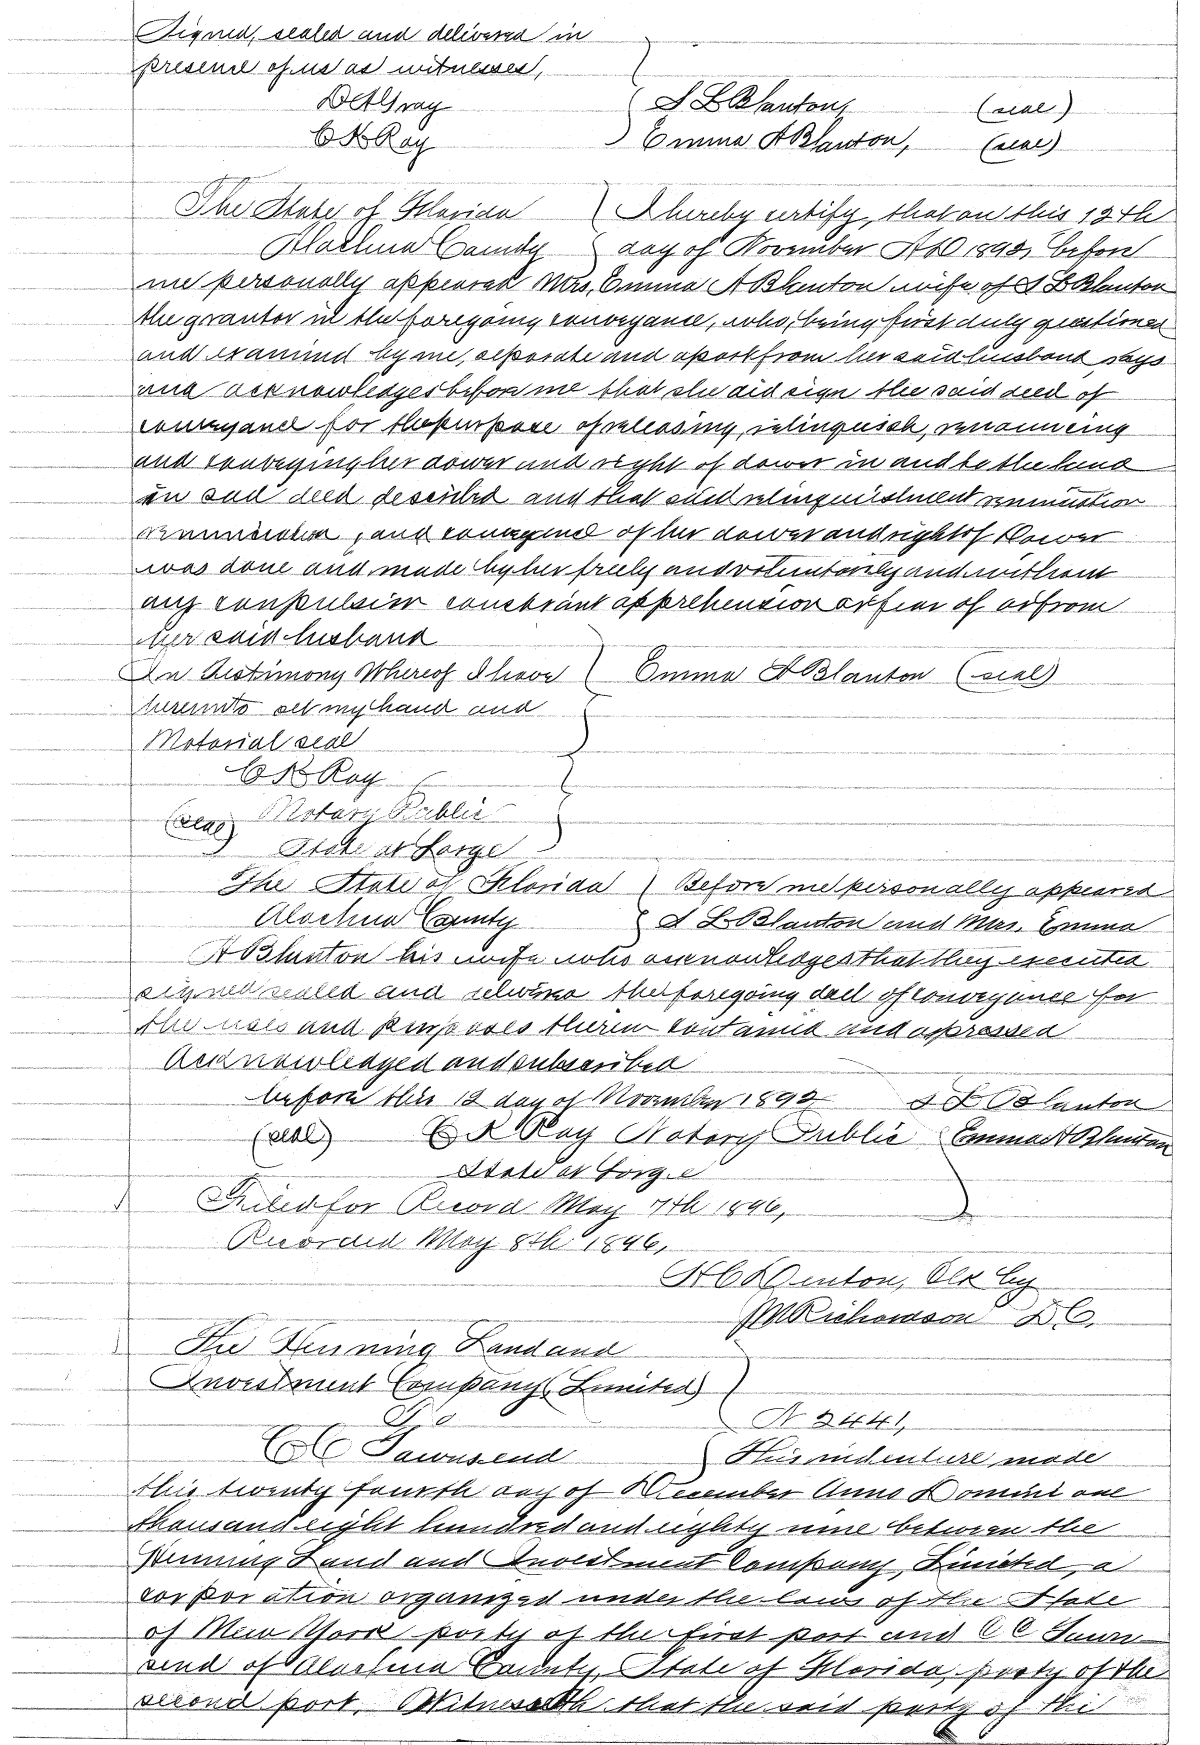 Signed, sealed and delivered in
presence of us as witnesses,
Gray S L Blanton, (seal)
C K Ray Emma A Blanton, (seal)
The State of Florida I hereby certify, that on this 12th
Alachua County day of November AD 1892, before
me personally appeared Mrs, Emma A Blanton wife of S L Blanton
the grantor in the foregoing conveyance, who, being first duly questioned
and examind by me, separate and apart from her said husband says
and acknowledges before me that she did sign the said deed of
conveyance for the purpose of releasing, relinquish, renouncing
and conveying her dower and right of dower in and to the land
in said deed described and that said relinquishment renunciation
renunciation, and conveyance of her dower and right of Dower
was done and made by her freely and voluntarily and without
any conpulsion constraint apprehension or fear of or from
her said husband
In Testimony Whereof I have Emma A Blanton (seal)
hereunto set my hand and
Notarial seal
C K Ray
(seal) Notary Public
State at Large
The State of Florida Before me personally appeared
Alachua County S L Blanton and Mrs. Emma
A Blanton his wife who acknowledges that they executed
signed sealed and the foregoing deed of conveyance for
the uses and purposes therein contained and expressed
Acknowledged and subscribed
before this 12 day of November 1892 S L Blanton
(seal) C K Ray Notary Public Emma A Blanton
State at Large
Filed for Record May 7th 1896,
Recorded May 8th 1896,
H C Denton, Clk by
M Richardson D C.
The Henning Land and
Investment Company (Limited)
To N 2441,
C C Townsend This indenture made
this twenty fourth day of December Anno Domini one
thousand eight hundred and eighty nine between the
Henning Land and Investment Company, Limited, a
corporation organized under the laws of the State
of New York party of the first part and C C Town
send of Alachua County, State of Florida, party of the
second part, Witnesseth that the said party of the